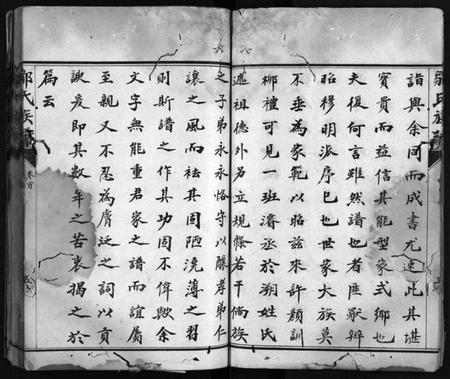 詣與余同而成書尤速此其堪
寶貴而益信其能型家式鄉也
夫復何言雖然譜也者匪獸辨
昭穆明派序已也世家大族莫
不垂為家範以昭茲來許顏訓
柳種可見一班濬丞於朔姓氏
述祖德外另立規條若干倘族
之子弟永永恪守以釀孝弟仁
讓之風而祛其固陋澆薄之習
則斯譜之作其功固不偉歟余
文字無能重君家之譜而誼屬
至親又不忍為膚泛之詞以貢
諛爰即其數年之苦衷揭之於
篇云
鄒氏族譜
卷首